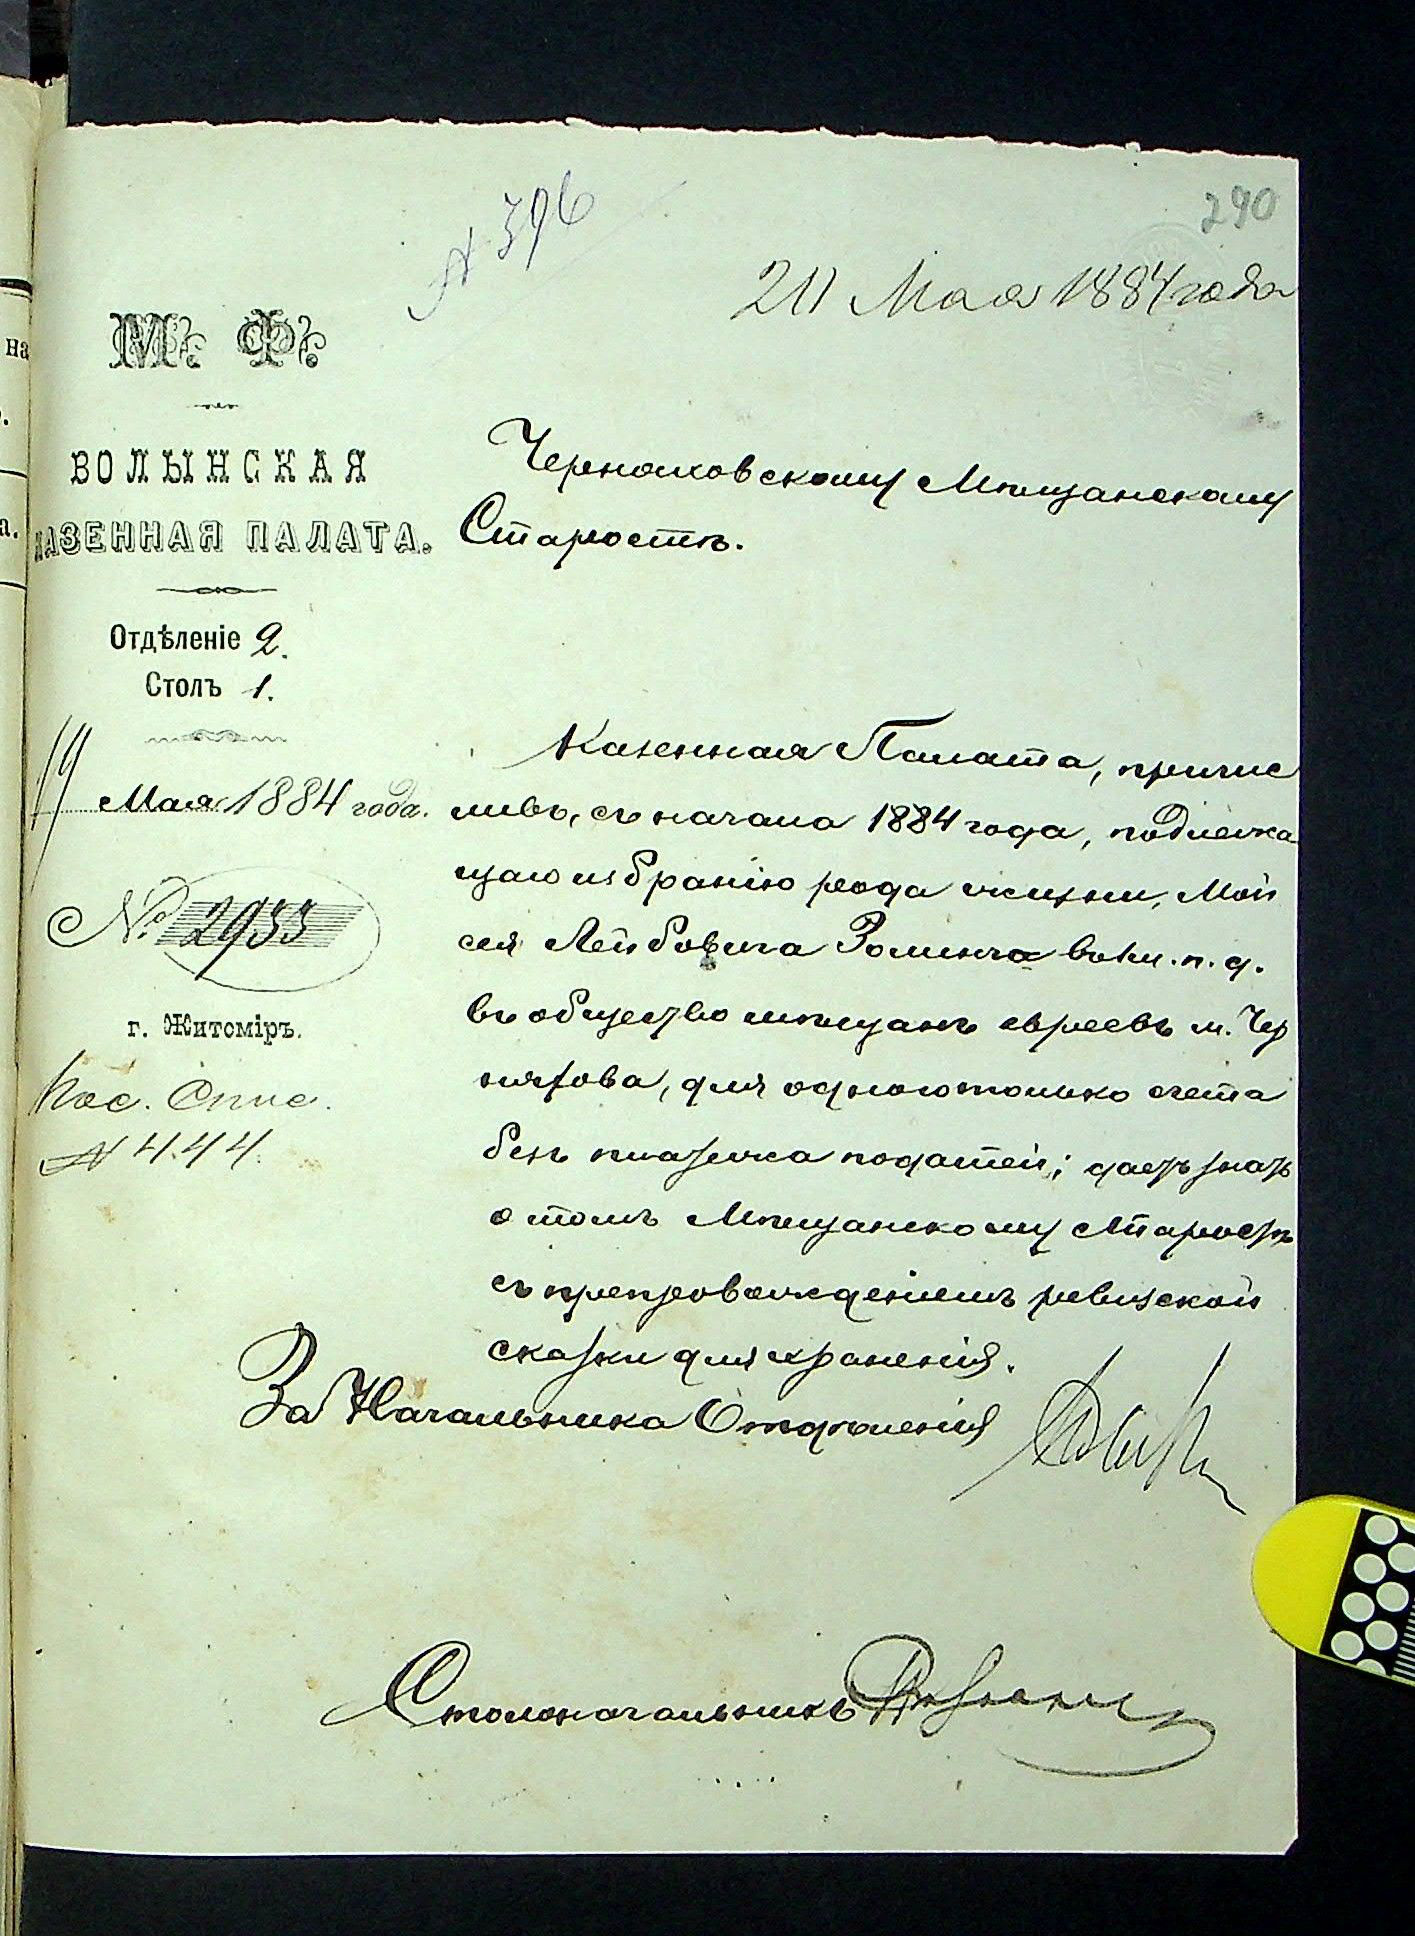 290
№ 396
211 Мая 1884 года
М. Ф.
ВОЛЫНСКАЯ
КАЗЕННАЯ ПАЛАТА.
Отдѣленіе 2.
Столъ 1.
19 Мая 1884 года.
№ 2933
г. Житоміръ.
Пос. Спис.
№ 444.
Черняховскому Мѣщанскому
Старостѣ.
Казенная Палата, причис
ливъ, съ начала 1884 года, подлежа
щаго избранію рода жизни, Мой
сея Лейбовича Золинга въ
въ общество мѣщанъ евреевъ м. Чер
няхова, для одного только счета
безъ платежа податей; даетъ знать
о томъ Мѣщанскому Старостѣ
съ препровожденіемъ ревизской
сказки для храненія.
За Начальника Отдѣленія
Столоначальникъ
на